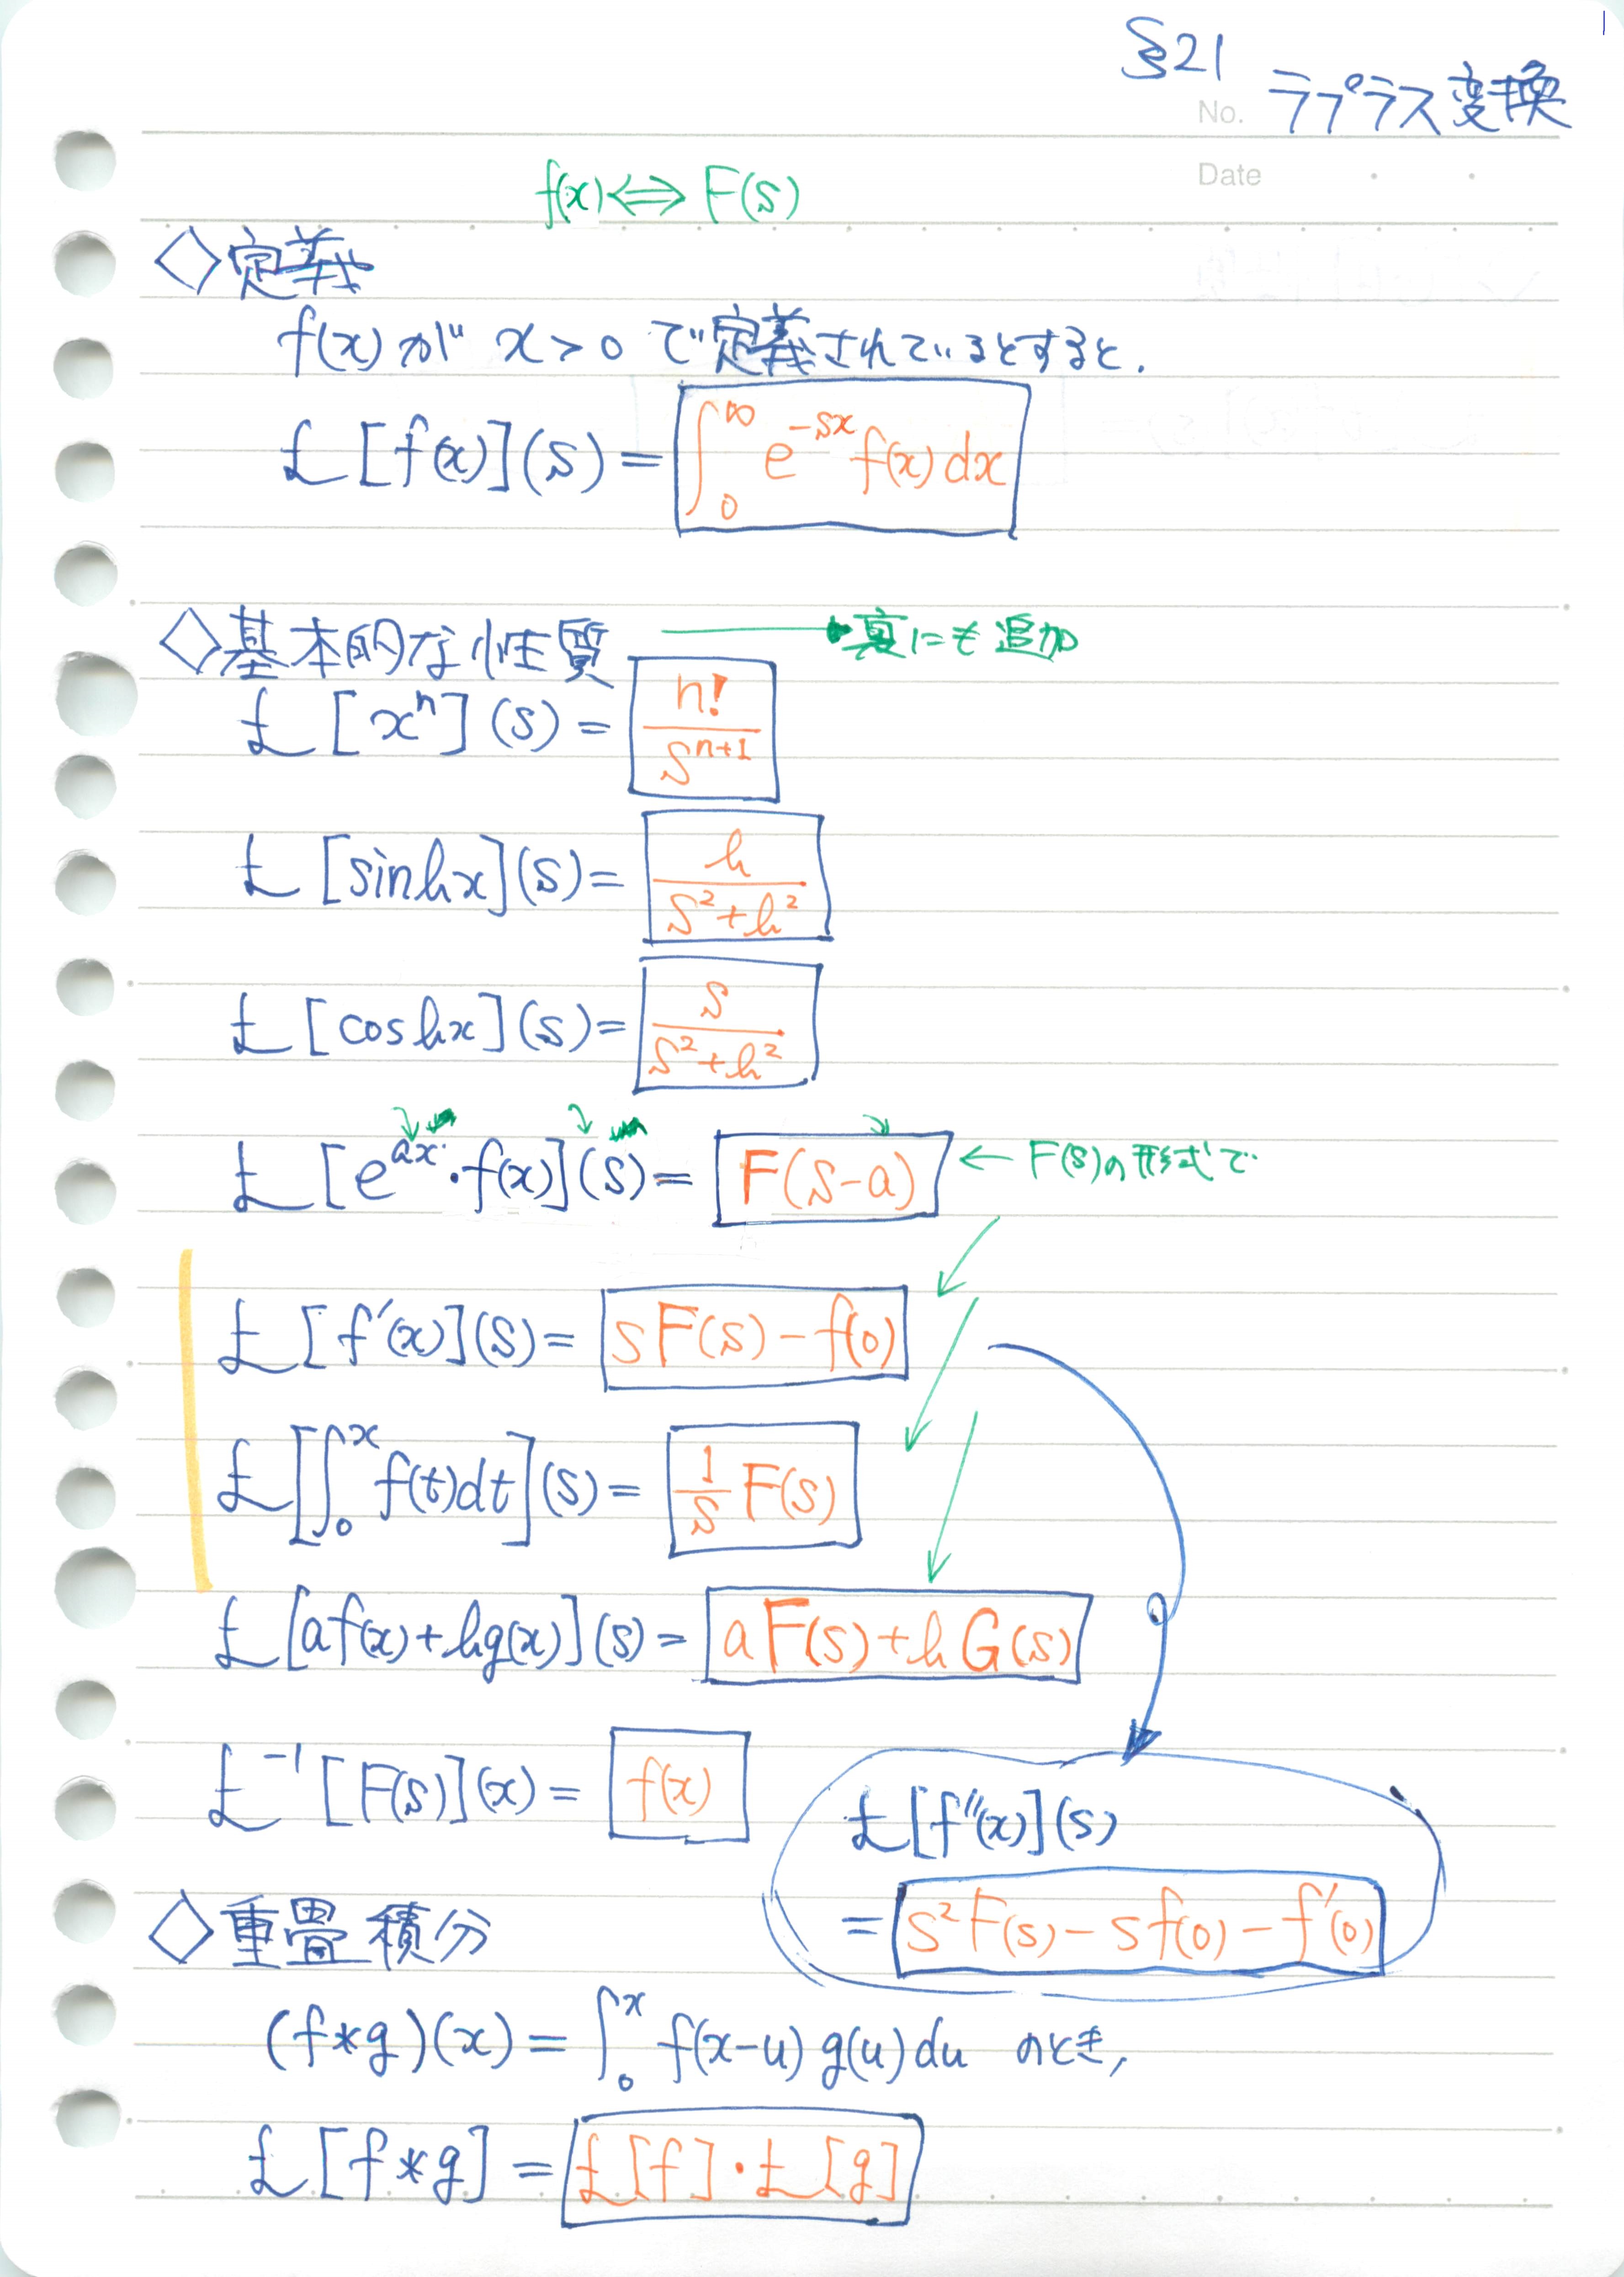 §21
No. ラプラス変換
Date
f(x)⇔F(s)
◇定義
f(x)が x>0 で定義されているとすると.
£[f(x)](s)=∫₀^∞ e^{-sx}f(x)dx
◇基本的な性質 → 裏にも追加
£[xⁿ](s)=n!/s^{n+1}
£[sin kx](s)=k/(s²+k²)
£[cos kx](s)=s/(s²+k²)
£[e^{ax}・f(x)](s)=F(s-a) ← F(s)の形式で
£[f'(x)](s)=sF(s)-f(0)
£[∫₀^x f(t)dt](s)=1/s F(s)
£[af(x)+kg(x)](s)=aF(s)+kG(s)
£⁻¹[F(s)](x)=f(x)
£[f''(x)](s)
=s²F(s)-sf(0)-f'(0)
◇重畳積分
(f*g)(x)=∫₀^x f(x-u)g(u)du のとき,
£[f*g]=£[f]・£[g]